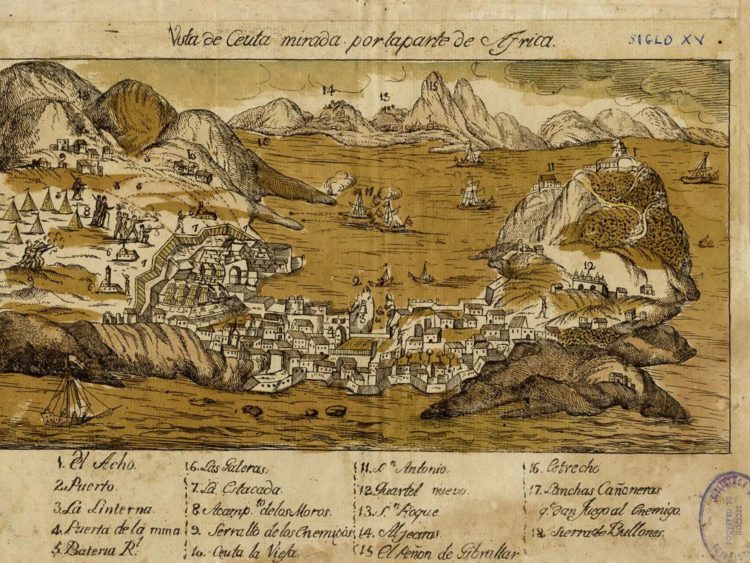 Vista de Ceuta mirada por la parte de Africa.
SIGLO XV
1. El Acho.
2. Puerto.
3. La Linterna.
4. Puerta de la mina
5. Bateria Rl.
6. Las Galeras.
7. La Estacada.
8 Acampto. de los Moros.
9. Serrallo de los Enemigos
10. Ceuta la Vieja.
11. Sn. Antonio.
12. Quartel nuevo.
13. Sn. Roque.
14. Aljeciras.
15. El Peñon de Gibraltar
16. Estrecho
17. Lanchas Cañoneras
q. dan fuego al Enemigo.
18. Sierra de Bullones.